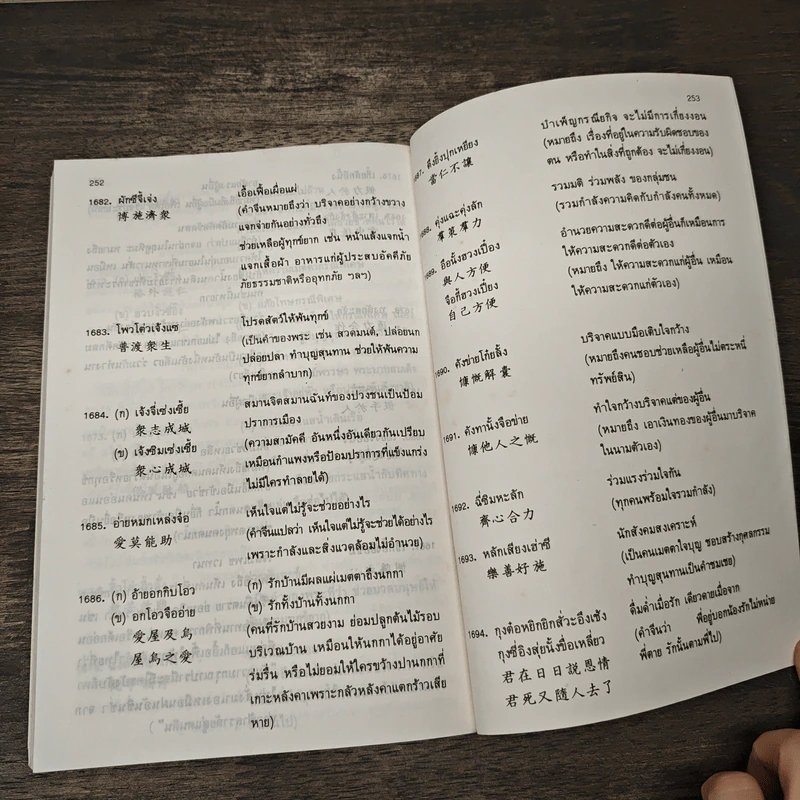 252
1682. ผักซีจี้เจ่ง
博施濟衆
เอื้อเฟื้อเผื่อแผ่
(คำจีนหมายถึงว่า บริจาคอย่างกว้างขวาง
แจกจ่ายกันอย่างทั่วถึง
ช่วยเหลือผู้ทุกข์ยาก เช่น หน้าแล้งแจกน้ำ
แจกเสื้อผ้า อาหารแก่ผู้ประสบอัคคีภัย
ภัยธรรมชาติหรืออุทกภัย ฯลฯ)
1683. โพวโต่วเจ้งแซ
普渡衆生
โปรดสัตว์ให้พ้นทุกข์
(เป็นคำของพระ เช่น สวดมนต์, ปล่อยนก
ปล่อยปลา ทำบุญสุนทาน ช่วยให้พ้นความ
ทุกข์ยากลำบาก)
1684. (ก) เจ้งจี่เซ่งเซี้ย
衆志成城
(ข) เจ้งซิมเซ่งเซี้ย
衆心成城
สมานจิตสมานฉันท์ของปวงชนเป็นป้อม
ปราการเมือง
(ความสามัคคี อันหนึ่งอันเดียวกันเปรียบ
เหมือนกำแพงหรือป้อมปราการที่แข็งแกร่ง
ไม่มีใครทำลายได้)
1685. อ่ายหมกเหล่งจ๋อ
愛莫能助
เห็นใจแต่ไม่รู้จะช่วยอย่างไร
(คำจีนแปลว่า เห็นใจแต่ไม่รู้จะช่วยได้อย่างไร
เพราะกำลังและสิ่งแวดล้อมไม่อำนวย)
1686. (ก) อ้ายอกกิบโอว
(ข) อกโอวจืออ่าย
愛屋及烏
屋烏之愛
(ก) รักบ้านมีผลแผ่เมตตาถึงนกกา
(ข) รักทั้งบ้านทั้งนกกา
(คนที่รักบ้านสวยงาม ย่อมปลูกต้นไม้รอบ
บริเวณบ้าน เหมือนให้นกกาได้อยู่อาศัย
ร่มรื่น หรือไม่ยอมให้ใครขว้างปานกกาที่
เกาะหลังคาเพราะกลัวหลังคาแตกร้าวเสีย
หาย)
253
ตึงยิ้งปุกเหยียง
當仁不讓
บำเพ็ญกรณียกิจ จะไม่มีการเกี่ยงงอน
(หมายถึง เรื่องที่อยู่ในความรับผิดชอบของ
ตน หรือทำในสิ่งที่ถูกต้อง จะไม่เกี่ยงงอน)
1688. คุ่งแฉะคุ่งลัก
羣策羣力
รวมมติ ร่วมพลัง ของกลุ่มชน
(รวมกำลังความคิดกับกำลังคนทั้งหมด)
1689. อือนั้งฮวงเปี่ยง
與人方便
จือกี้ฮวงเปี่ยง
自己方便
อำนวยความสะดวกดีต่อผู้อื่นก็เหมือนการ
ให้ความสะดวกดีต่อตัวเอง
(หมายถึง ให้ความสะดวกแก่ผู้อื่น เหมือน
ให้ความสะดวกแก่ตัวเอง)
1690. คังข่ายโก๋ยล้ง
慷慨解囊
บริจาคแบบมือเติบใจกว้าง
(หมายถึงคนชอบช่วยเหลือผู้อื่นไม่ตระหนี่
ทรัพย์สิน)
1691. คังทานั้งจือข่าย
慷他人之慨
ทำใจกว้างบริจาคแต่ของผู้อื่น
(หมายถึง เอาเงินทองของผู้อื่นมาบริจาค
ในนามตัวเอง)
1692. ฉี่ซิมหะลัก
齊心合力
ร่วมแรงร่วมใจกัน
(ทุกคนพร้อมใจรวมกำลัง)
1693. หลักเสียงเฮ่าซี
樂善好施
นักสังคมสงเคราะห์
(เป็นคนเมตตาใจบุญ ชอบสร้างกุศลกรรม
ทำบุญสุนทานเป็นคำชมเชย)
1694. กุงต๋อหยิกยิกส่วะอึงเช้ง
กุงซี่อิ่วสุ่ยนั้งขื่อเหลี่ยว
君在日日説恩情
君死又隨人去了
ดื่มด่ำเมื่อรัก เดียวดายเมื่อจาก
(คำจีนว่า พี่อยู่บอกน้องรักไม่หน่าย
พี่ตาย รักนั้นตามพี่ไป)